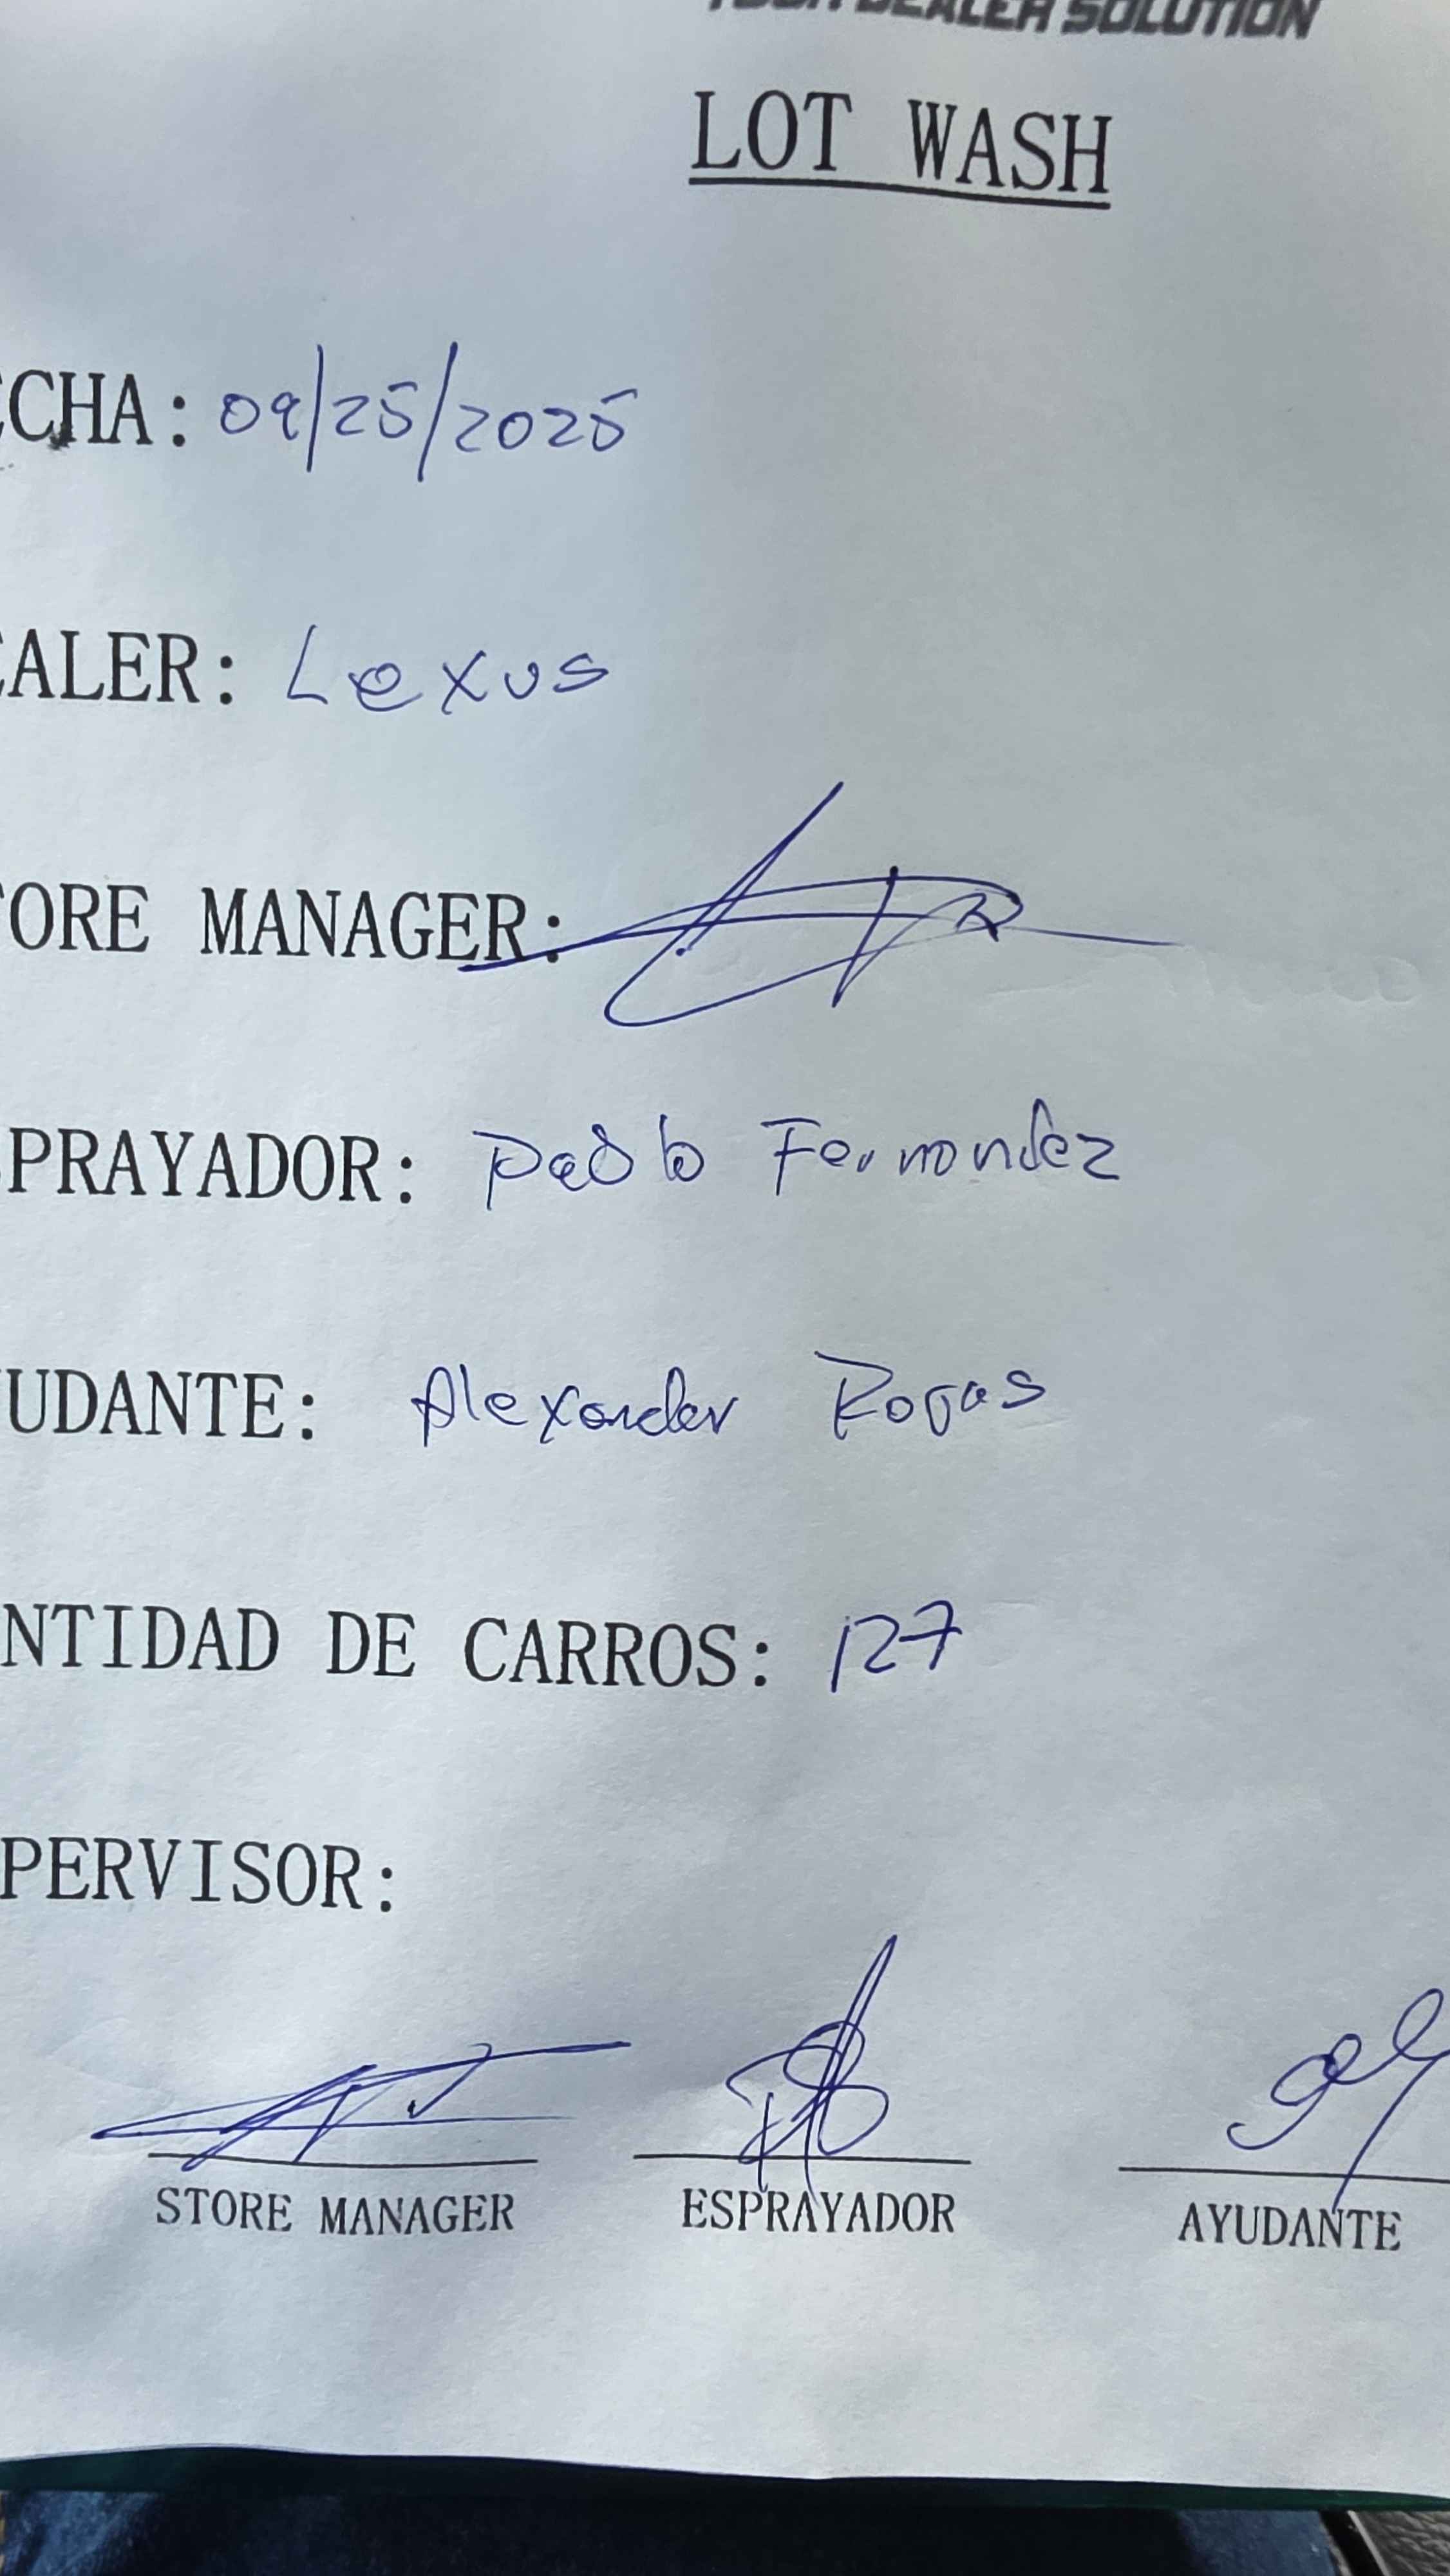 DEALER SOLUTION
LOT WASH
ECHA: 09/25/2025
EALER: Lexus
ORE MANAGER:
PRAYADOR: Pablo Fernandez
UDANTE: Alexander Rojas
NTIDAD DE CARROS: 127
PERVISOR:
STORE MANAGER ESPRAYADOR AYUDANTE